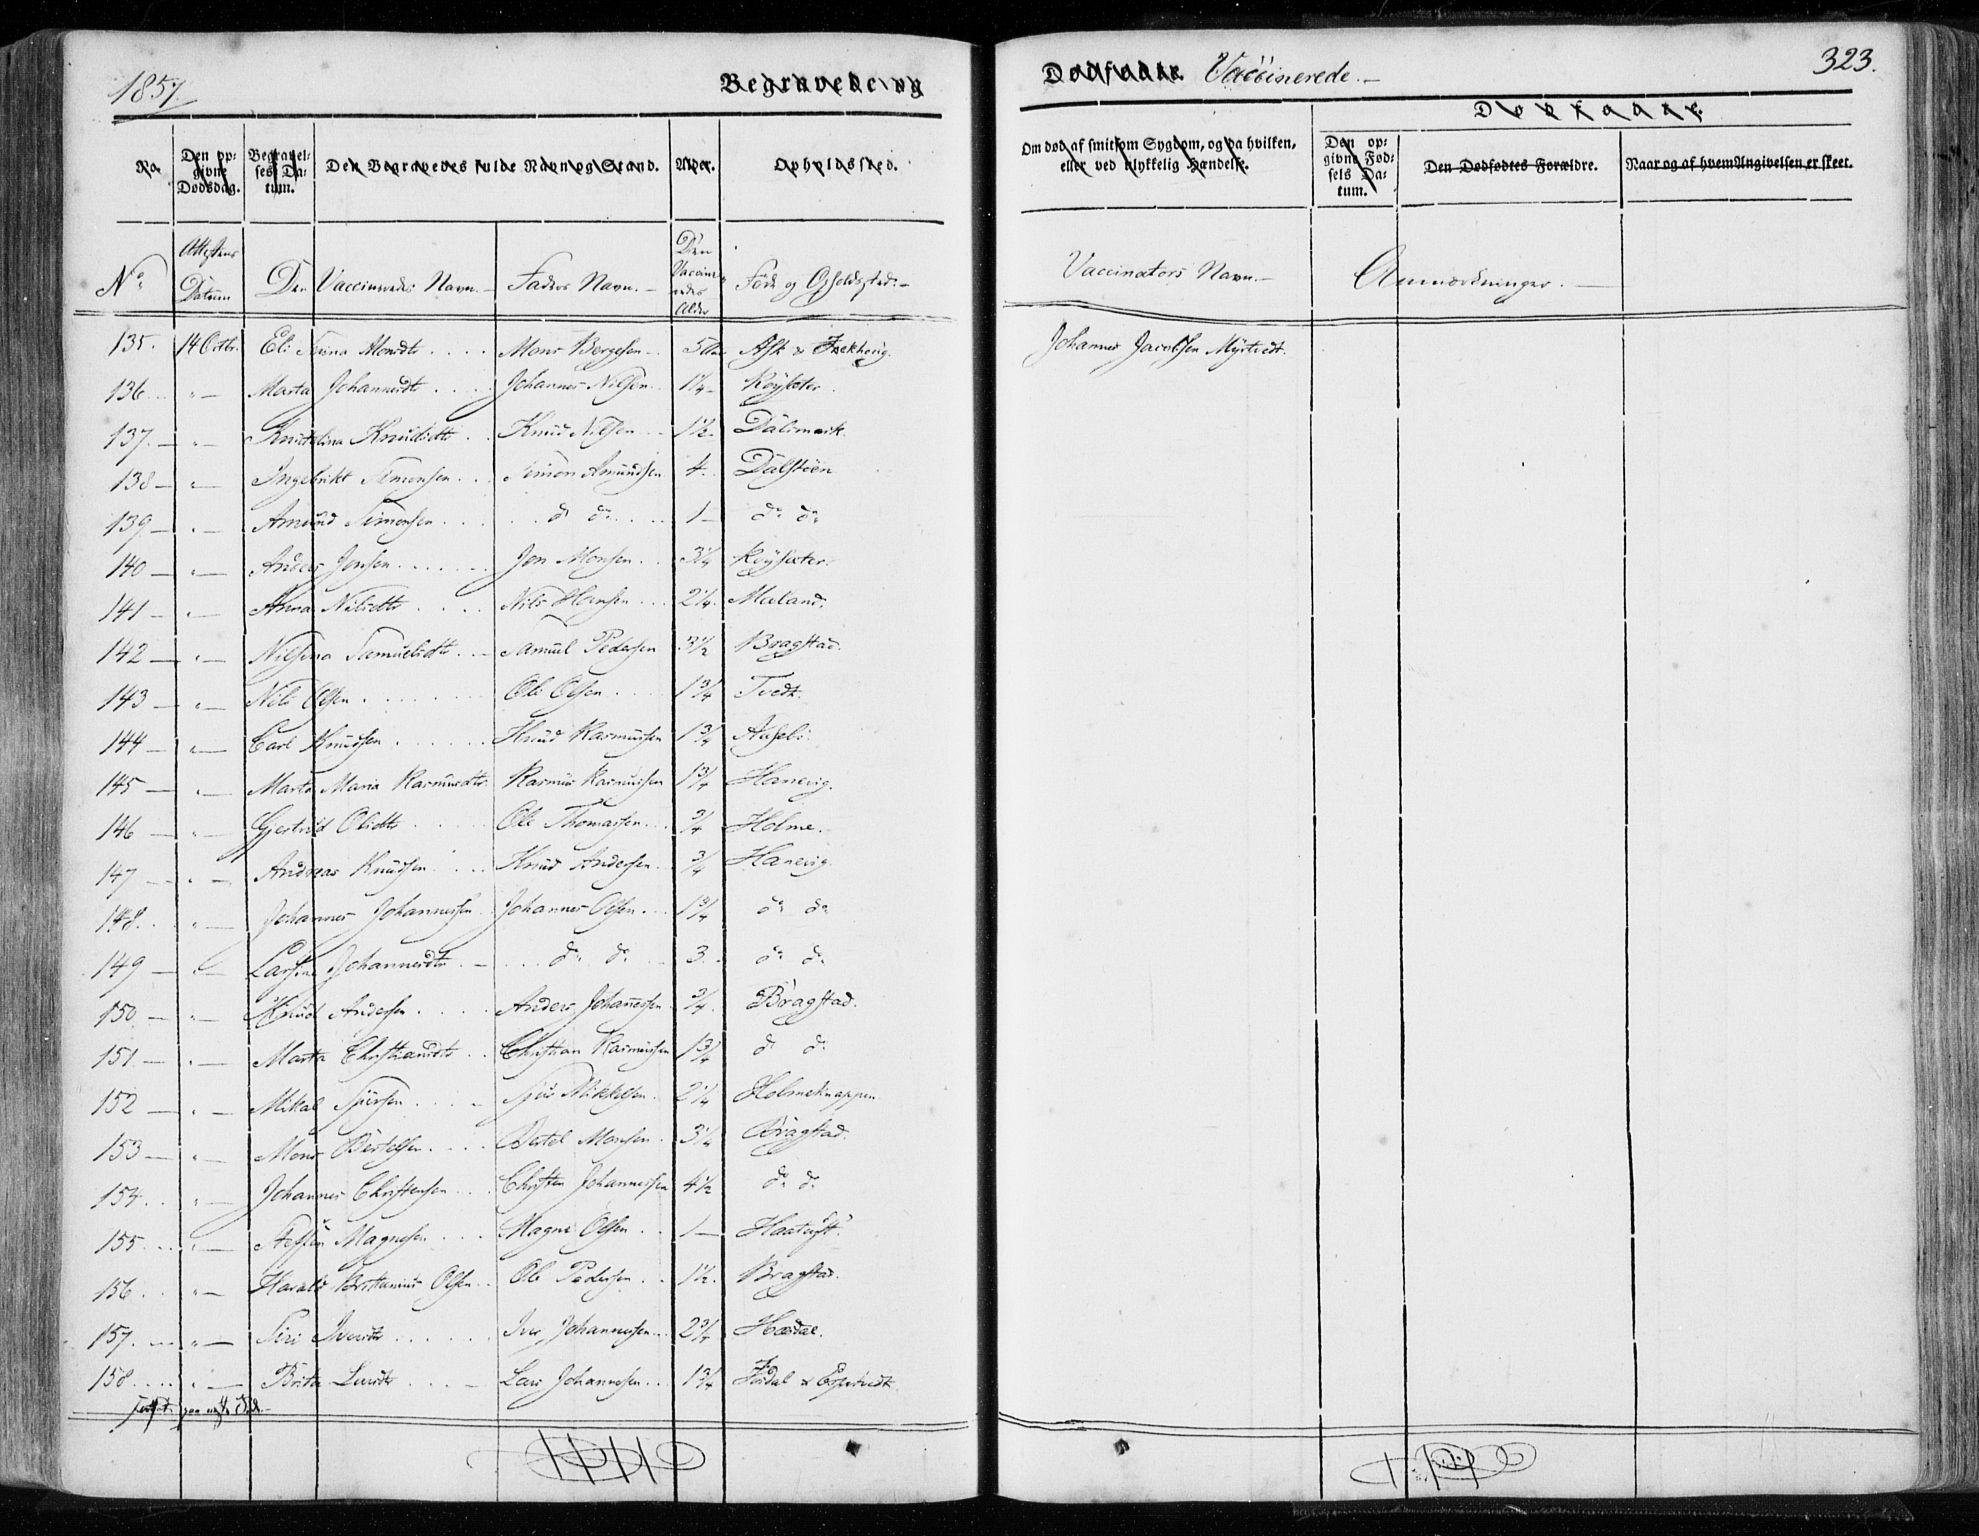 1857.
Begravede og Dødfødte. Vaccinerede.—
323.
Dødfødte.
No Den opgivne Dødsdag. Begravelses Datum. Den Begravedes fulde Navn og Stand. Alder. Opholdssted. Om død af smitsom Sygdom, og da hvilken, eller ved ulykkelig Hændelse. Den opgivne Fødsels Datum. Den Dødfødtes Forældre. Naar og af hvem Angivelsen er skeet.
No Attestens Datum Den Vaccineredes Navn.— Faders Navn.— Den Vaccineredes Alder Føde og Opholdsted.— Vaccinators Navn.— Anmærkninger.—
135. 14 Octbr. Eli Monsdtr Mons Bergesen Ask Johannes Jacobsen Myrtvedt.
136 " Marta Johannesdtr Johannes Nilsen 1¼ Røysæter
137 " Knudsdtr Knud Nilsen 1½ Dalsmark
138 " Ingebrikt Simonsen Simon Amundsen 4 Dalstøen
139 " Amund Simonsen do do 1 do do
140 " Anders Jonsen Jon Monsen 3¼ Røysæter
141 " Anna Nilsdtr Nils Hansen 2¼ Mæland.
142 " Nilsina Samuelsdtr Samuel Pedersen 3½ Bragstad.
143 " Nils Olsen Ole Olsen 1¾ Tvedt.
144 " Carl Knudsen Knud Rasmussen 1¾
145 " Marta Maria Rasmusdtr Rasmus Rasmussen 1¾ Hanevig.
146 " Gjertrud Olsdtr Ole Thomassen ¾ Holme.
147 " Andreas Knudsen Knud Andersen ¾ Hanevig
148 " Johannes Johannessen Johannes Olsen 1¾ do do
149 " Larsine Johannesdtr do do 3 do do
150 " Knud Andersen Anders Johannessen ¾ Bragstad.
151 " Marta Christiansdtr Christian Rasmussen 1¾ do do
152 " Mikal Sjursen Sjur Mikkelsen 2¼ Holmeknappen
153 " Mons Bertelsen Bertel Monsen 3¼ Bragstad.
154 " Johannes Christensen Christen Johannessen 4½ do do
155 " Magnesen Magne Olsen 1 Haatuft
156 " Harald Olsen Ole Pedersen 1½ Bragstad.
157 " Siri Iversdtr Iver Johannessen 2¾ Hosdal.
158 " Brita Larsdtr Lars Johannesen 1¾